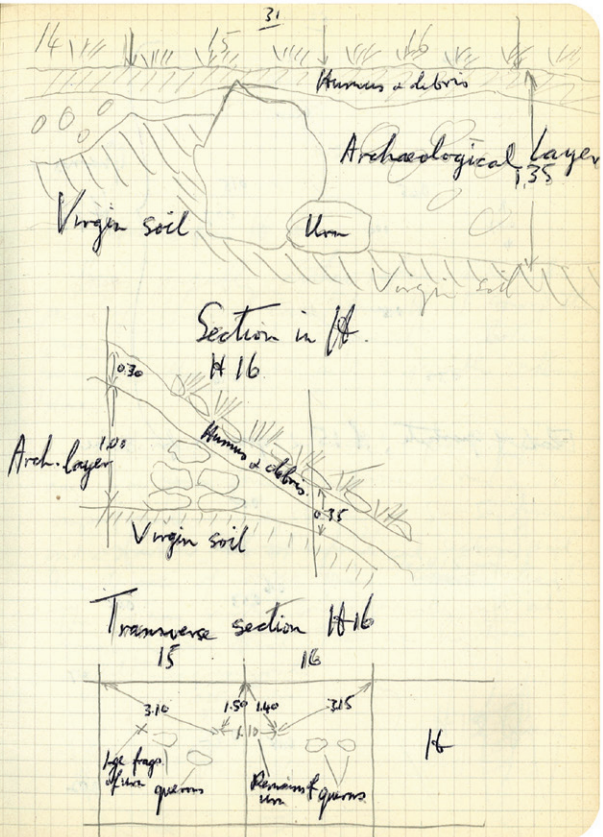 31
14 15 16
Humus & debris
Archæological Layer
1.35
Virgin soil
Urn
Virgin soil
Section in H.
H 16
0.30
Humus & debris
1.00
Arch. layer
0.35
Virgin soil
Transverse section H 16
15 16
3.10 1.50 1.40 3.15
1.10
H
Lge frags
of urn querns
Remains of
urn querns